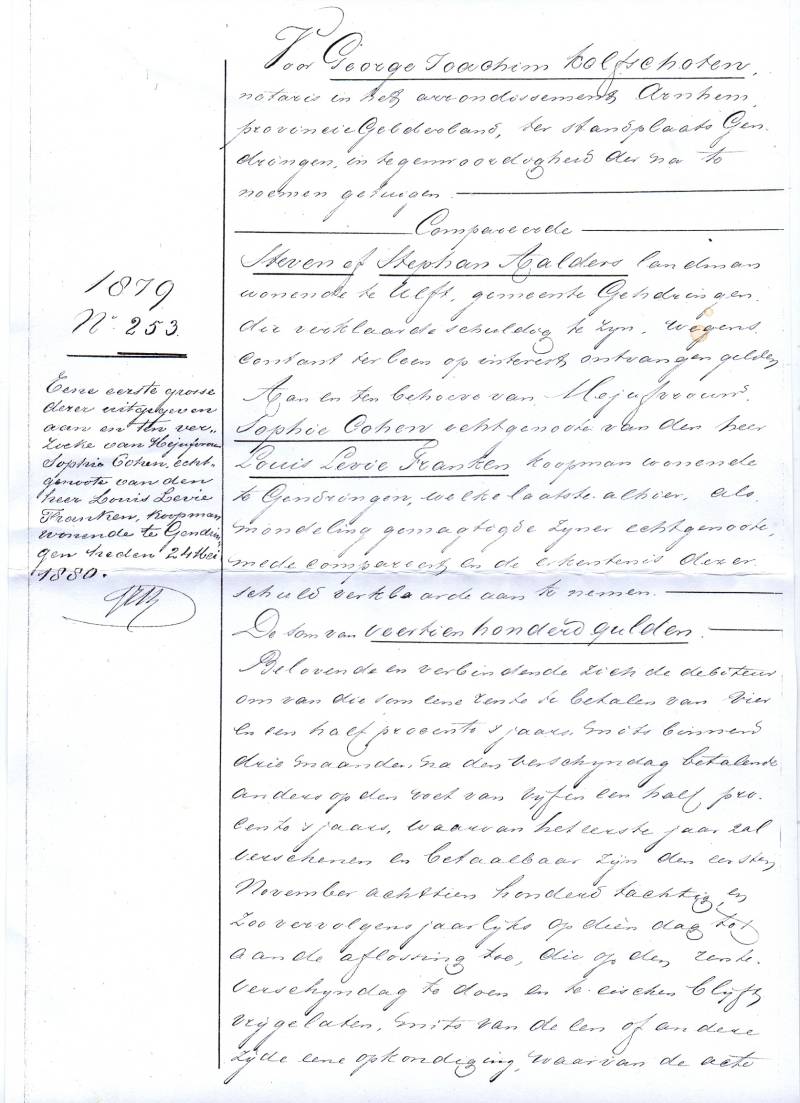 1879
No 253.
Eene eerste grosse
dezer uitgegeven
aan en ten ver-
zoeke van Mejufvrouw
Sophie Cohen, echt-
genoote van den
heer Louis Levie
Franken, koopman
wonende te Gendrin-
gen heden 24 Mei
1880.
Voor George Joachim Kolfschoten,
notaris in het arrondissement Arnhem,
provincie Gelderland, ter standplaats Gen-
dringen, in tegenwoordigheid der na te
noemen getuigen.
Compareerde
Steven of Stephan Aalders landman
wonende te Ulft, gemeente Gendringen.
die verklaarde schuldig te zyn, wegens
contant ter leen op interest ontvangen gelden
Aan en ten behoeve van Mejufvrouw
Sophie Cohen echtgenoote van den heer
Louis Levie Franken koopman wonende
te Gendringen, welke laatste alhier, als
mondeling gemagtigde zyner echtgenoote,
mede compareert en de erkentenis dezer
schuld verklaarde aan te nemen.
De som van veertien honderd gulden.
Belovende en verbindende zich de debiteur
om van die som eene rente te betalen van vier
en een half procent 's jaars, mits binnen
drie maanden na den verschyndag betalende
anders op den voet van vyf en een half pro-
cent 's jaars, waarvan het eerste jaar zal
verschenen en betaalbaar zyn den eersten
November achttien honderd tachtig, en
zoo vervolgens jaarlyks op dien dag tot
aan de aflossing toe, die op den rente-
verschyndag te doen en te eischen blyft
vrygelaten, mits van de een of andere
zyde eene opkondiging, waarvan de acte